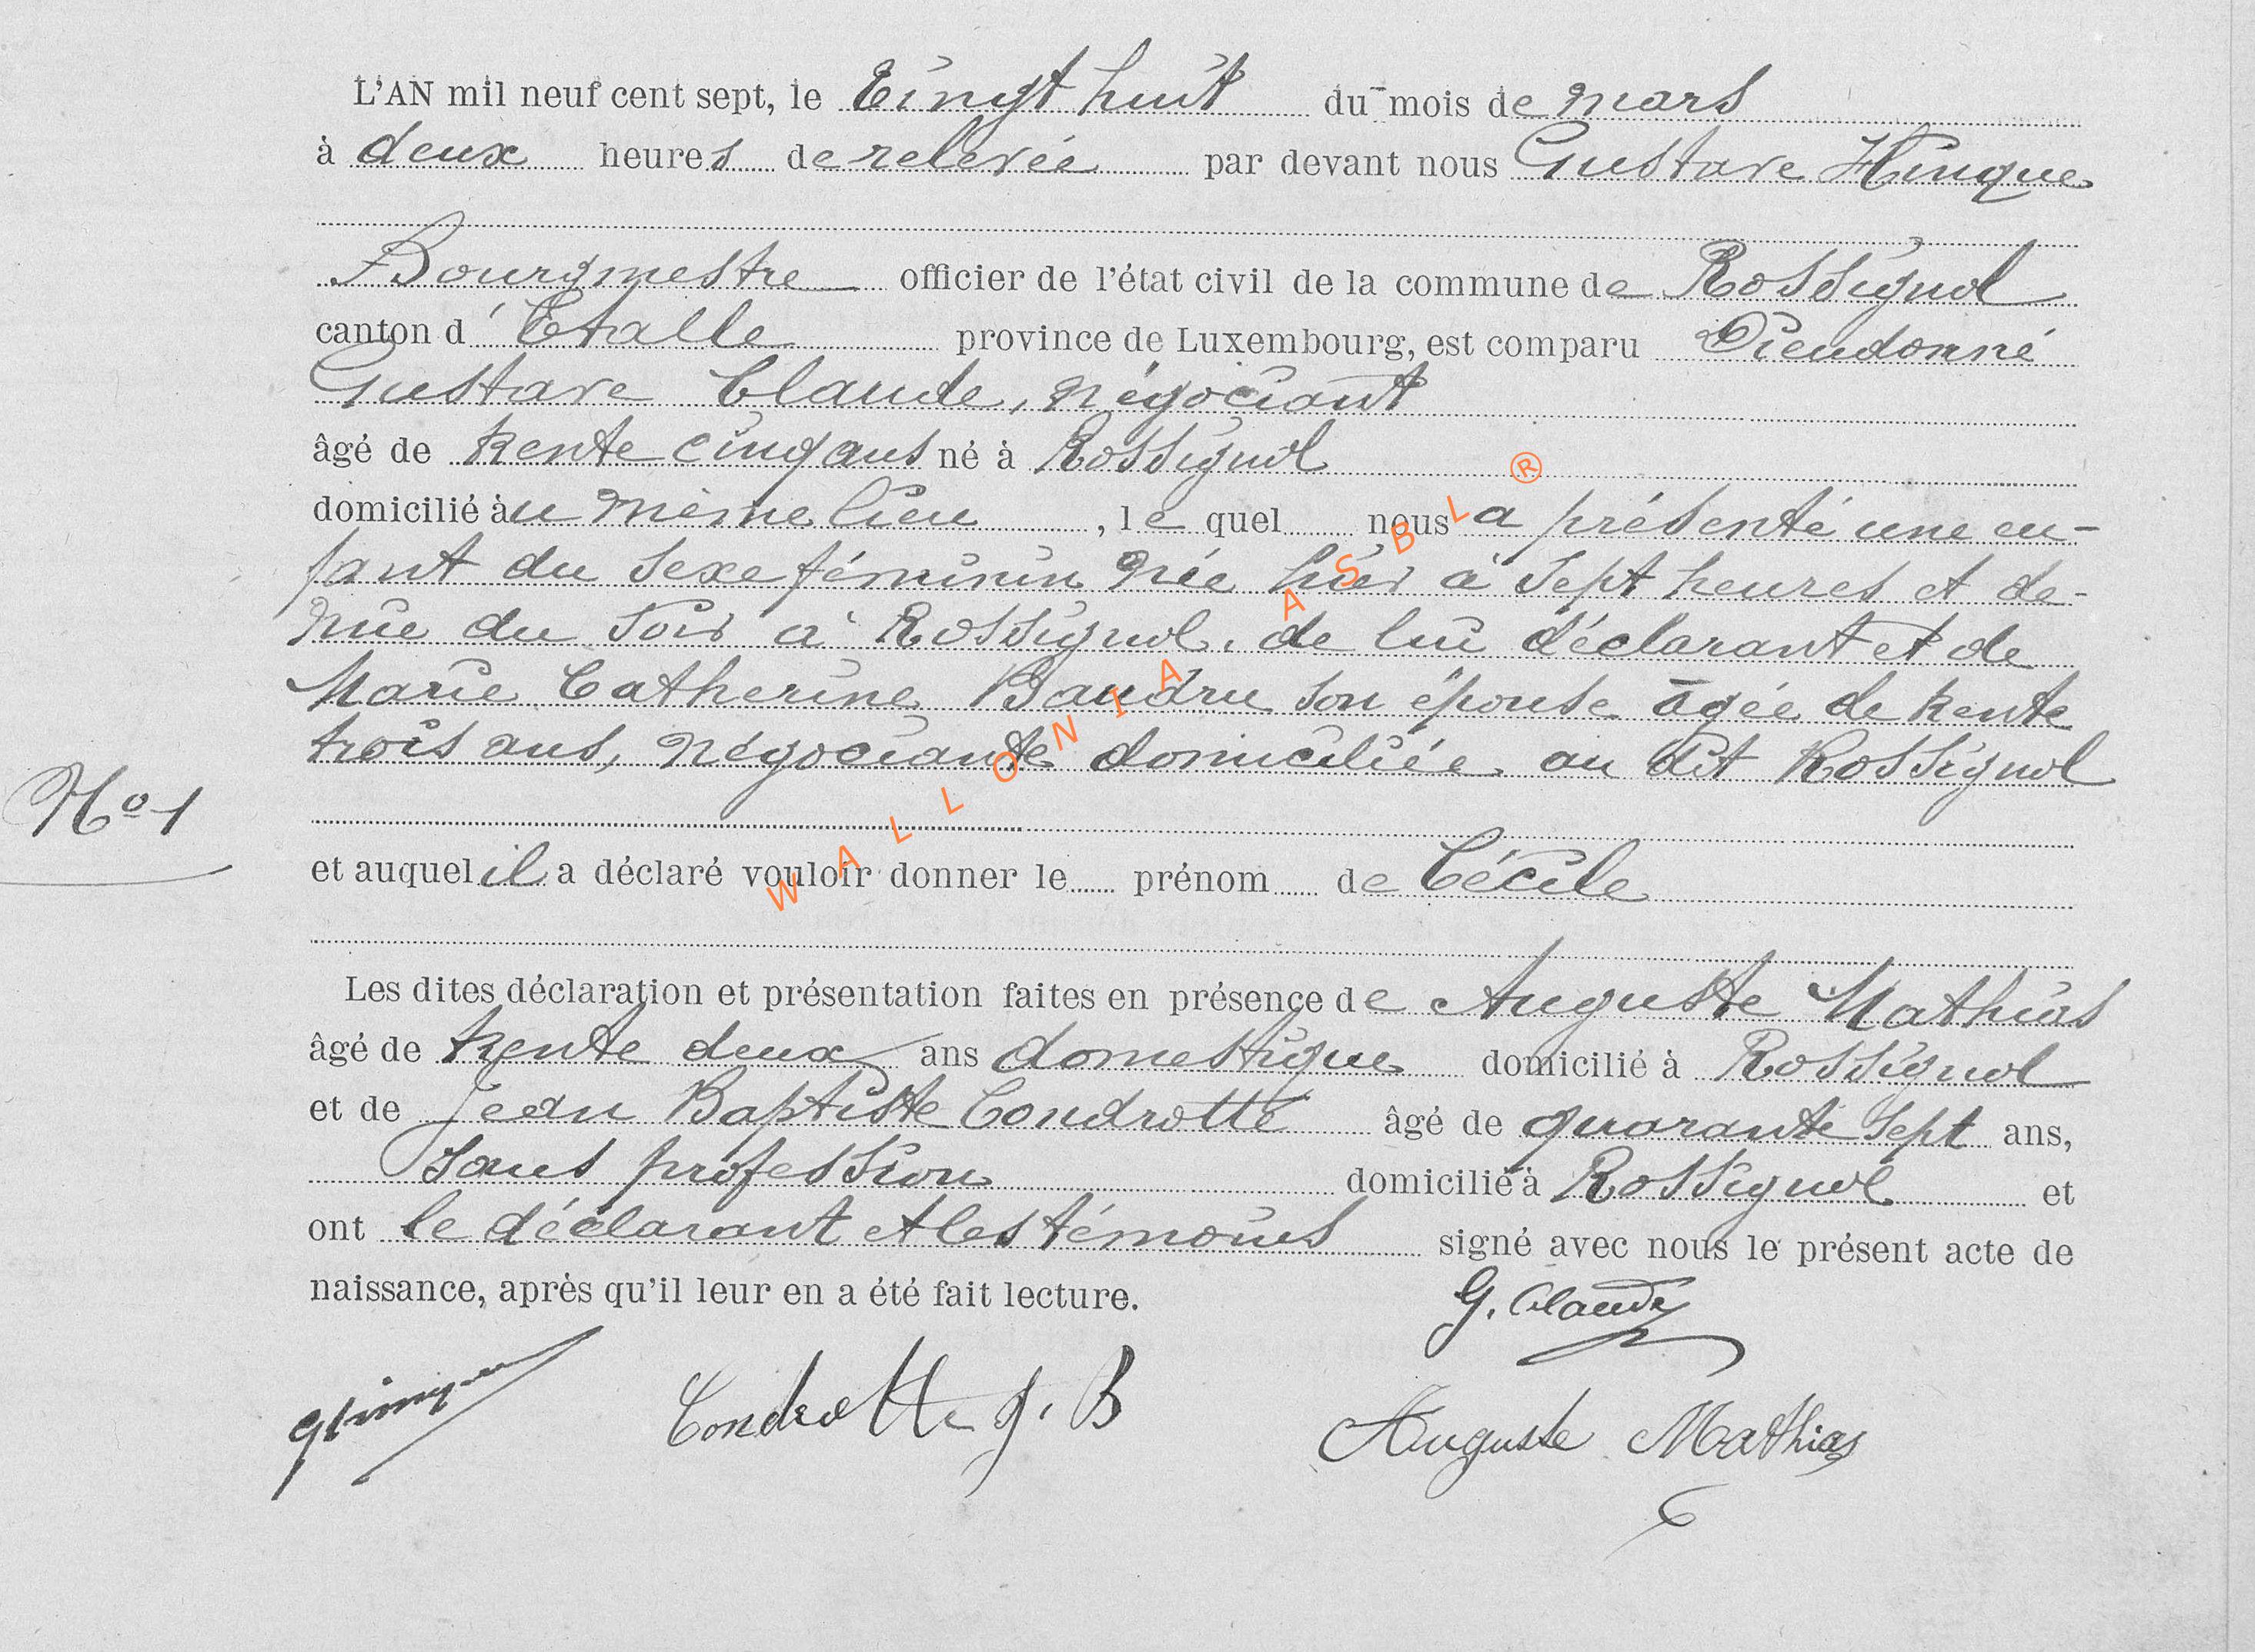 L'AN mil neuf cent sept, le Vingt huit du mois de mars
à deux heures de relevée par devant nous Gustave Hinque
Bourgmestre officier de l'état civil de la commune de Rossignol
canton d'Etalle province de Luxembourg, est comparu Dieudonné
Gustave Claude, négociant
âgé de trente cinq ans né à Rossignol
domicilié au même lieu, le quel nous a présenté une en-
fant du sexe féminin née hier à sept heures et de-
mie du soir à Rossignol, de lui déclarant et de
Marie Catherine Baudru son épouse âgée de trente
trois ans, négociante domiciliée au dit Rossignol
No 1
et auquel il a déclaré vouloir donner le prénom de Cécile
Les dites déclaration et présentation faites en présence de Auguste Mathias
âgé de trente deux ans domestique domicilié à Rossignol
et de Jean Baptiste Condrotte âgé de quarante sept ans,
sans profession domicilié à Rossignol et
ont le déclarant et les témoins signé avec nous le présent acte de
naissance, après qu'il leur en a été fait lecture.
G. Claude
Condrotte J. B
Auguste Mathias
WALLONIA ASBL ®